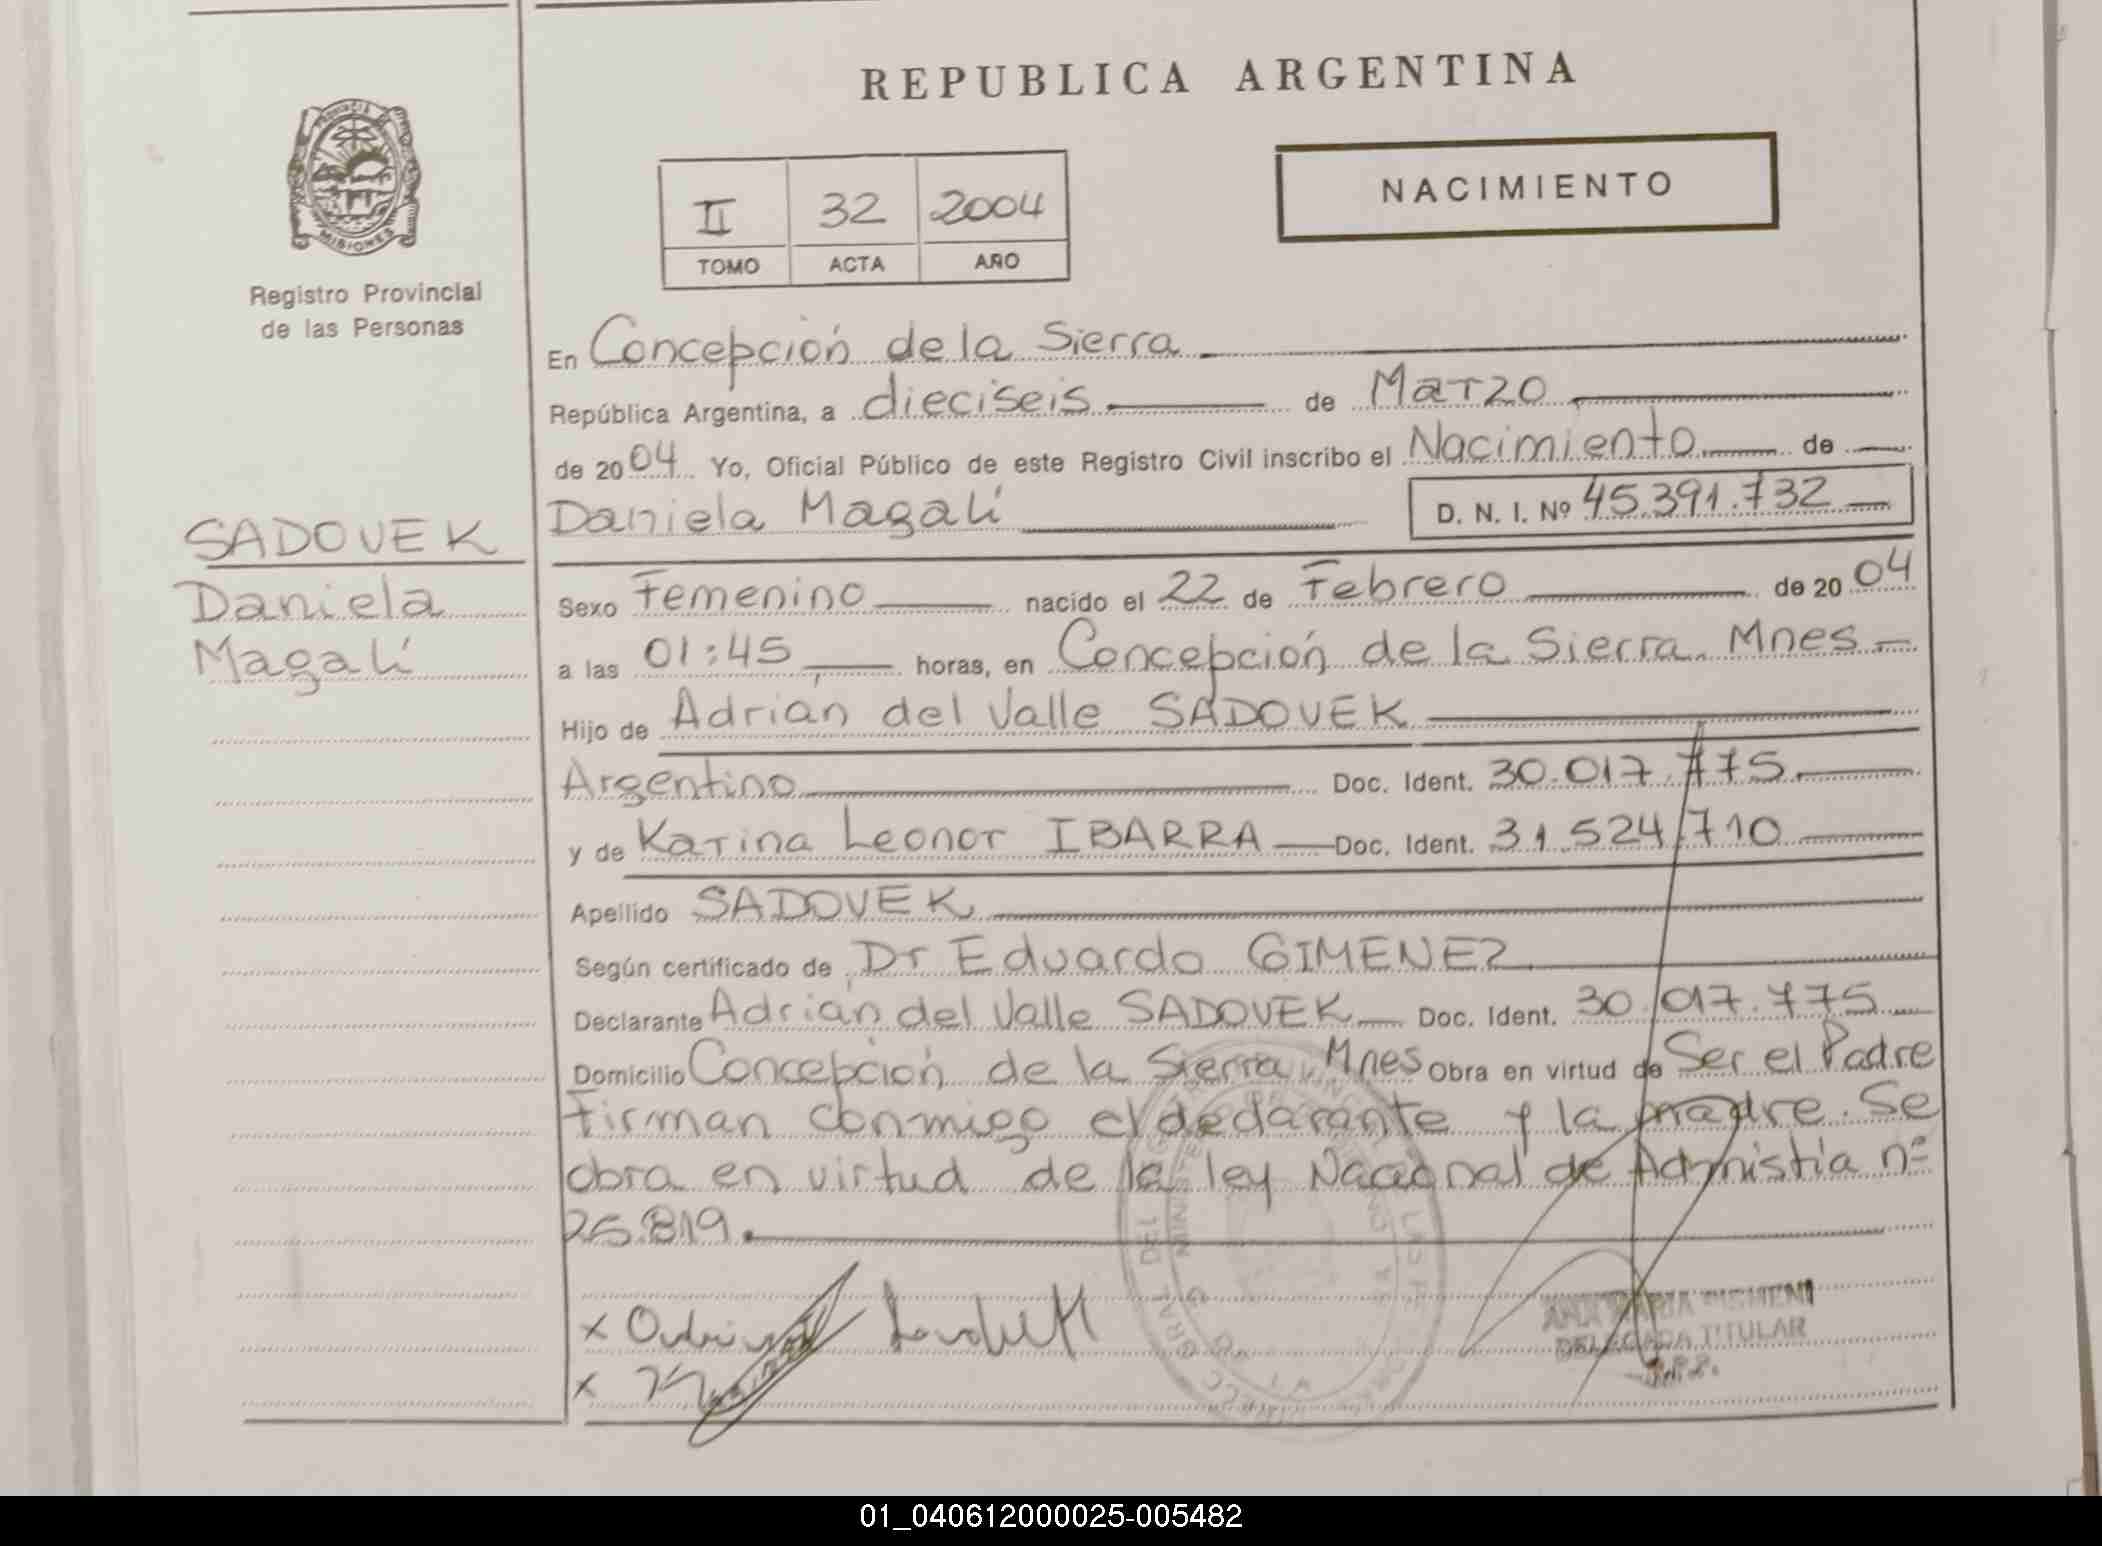 REPUBLICA ARGENTINA
PROVINCIA DE
MISIONES
Registro Provincial
de las Personas
NACIMIENTO
II 32 2004
TOMO ACTA AÑO
En Concepción de la Sierra
República Argentina, a dieciseis de Marzo
de 2004 Yo, Oficial Público de este Registro Civil inscribo el Nacimiento de
Daniela Magalí D. N. I. Nº 45.391.732
SADOVEK
Daniela
Magalí
Sexo Femenino nacido el 22 de Febrero de 2004
a las 01:45 horas, en Concepción de la Sierra. Mnes
Hijo de Adrián del Valle SADOVEK
Argentino Doc. Ident. 30.017.775
y de Karina Leonor IBARRA Doc. Ident. 31.524.710
Apellido SADOVEK
Según certificado de Dr Eduardo GIMENEZ
Declarante Adrián del Valle SADOVEK Doc. Ident. 30.017.775
Domicilio Concepción de la Sierra, Mnes Obra en virtud de Ser el Padre
Firman conmigo el declarante y la madre. Se
obra en virtud de la ley Nacional de Admistía nº
25.819.
x
x
ANA MARIA
DELEGADA TITULAR
01_040612000025-005482